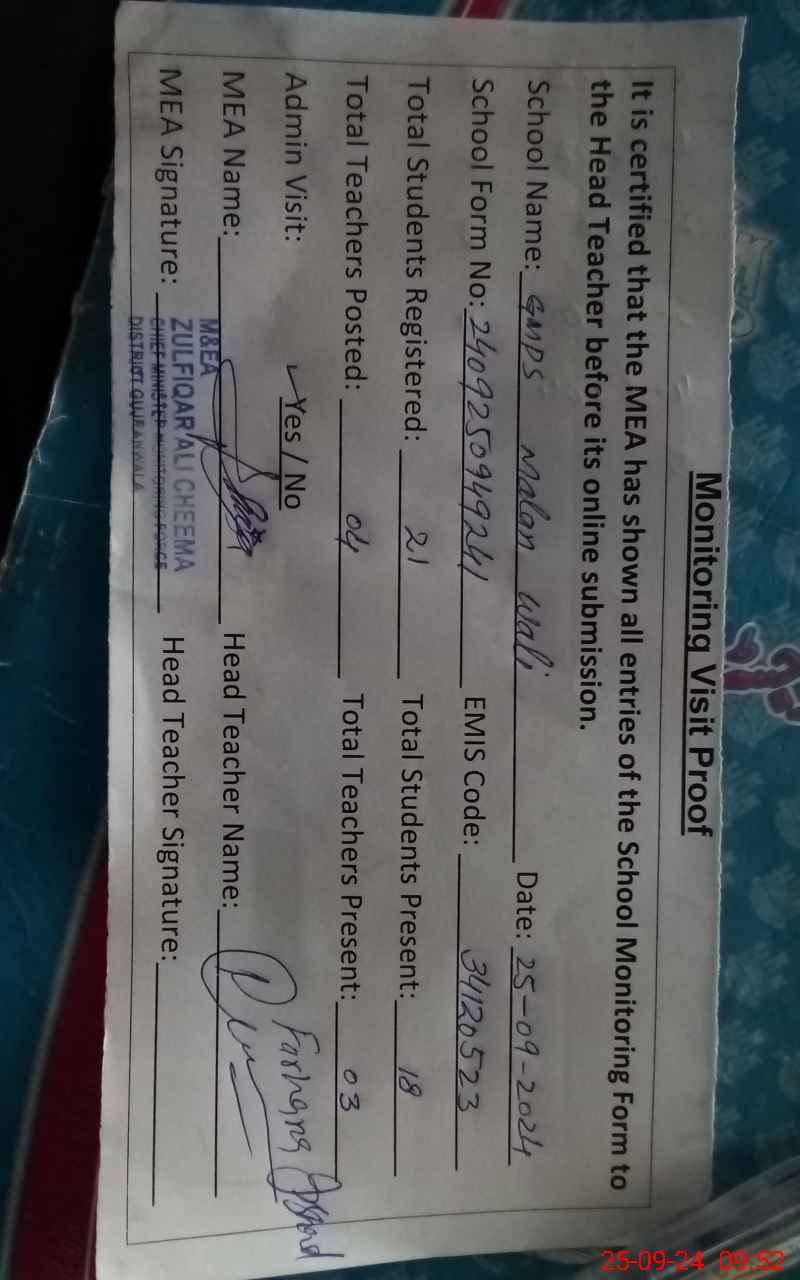 Monitoring Visit Proof
It is certified that the MEA has shown all entries of the School Monitoring Form to
the Head Teacher before its online submission.
School Name: GMPS Malan Wali Date: 25-09-2024
School Form No: 2409250949241 EMIS Code: 34120523
Total Students Registered: 21 Total Students Present: 18
Total Teachers Posted: 04 Total Teachers Present: 03
Admin Visit: ✓Yes / No
Farhana Arshad
MEA Name: Head Teacher Name:
M&EA
ZULFIQAR ALI CHEEMA
MEA Signature: Head Teacher Signature:
CHIEF MINISTER MONITORING FORCE
DISTRICT GUJRANWALA
25-09-24 09:52